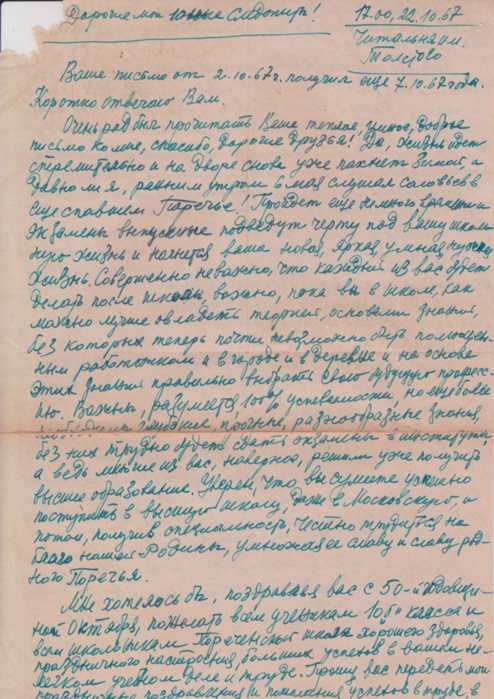 Дорогие мои юные следопыты!
17.00, 22.10.67
Читальня им.
Толстого
Ваше письмо от 2.10.67 г. получил еще 7.10.67 года.
Коротко отвечаю Вам.
Очень рад был прочитать Ваше теплое, умное, доброе
письмо ко мне, спасибо, дорогие друзья! Да, жизнь идет
стремительно и на дворе снова уже пахнет зимой, а
давно ли я, ранним утром 6 мая слушал соловьев в
еще спавшем Поречье! Пройдет еще немного времени и
экзамены выпускные подведут черту под вашу школь
ную жизнь и начнется ваша новая, яркая, умная
жизнь. Совершенно неважно, что каждый из вас будет
делать после школы, важно, пока вы в школе, как
можно лучше овладеть теорией, основами знаний,
без которых теперь почти невозможно быть полноцен-
ным работником и в городе и в деревне и на основе
этих знаний правильно выбрать свою будущую профес-
сию. Важны, разумеется, 100% успеваемости, но еще более
глубокие, прочные, разнообразные знания,
без них трудно будет сдать экзамены в институты
а ведь многие из вас, наверное, решили уже получить
высшее образование. Уверен, что вы сумеете успешно
поступить в высшую школу, даже в Московскую, и
потом, получив специальность, честно трудиться на
благо нашей Родины, умножая ее славу и славу род-
ного Поречья.
Мне хотелось бы, поздравляя вас с 50-й годовщи-
ной Октября, пожелать всем ученикам 10б класса и
всем школьникам Пореченской школы хорошего здоровья,
праздничного настроения, больших успехов в вашем не-
легком учебном деле и труде. Прошу вас передать мои
праздничные поздравления и пожелания успехов в труде, в